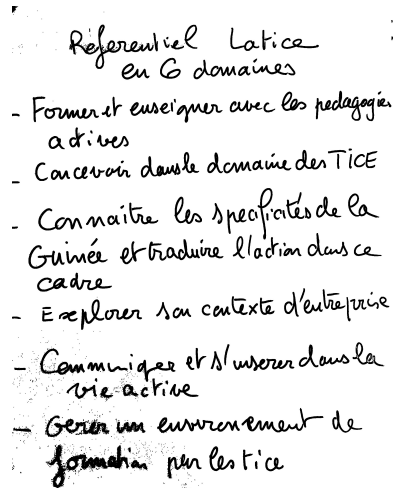 Référentiel Latice
en 6 domaines
- Former et enseigner avec les pedagogies
actives
- Concevoir dans le domaine des TICE
- Connaitre les specificités de la
Guinée et traduire l'action dans ce
cadre
- Explorer son contexte d'entreprise
- Communiquer et s'inserer dans la
vie active
- Gerer un environement de
formation par les tice